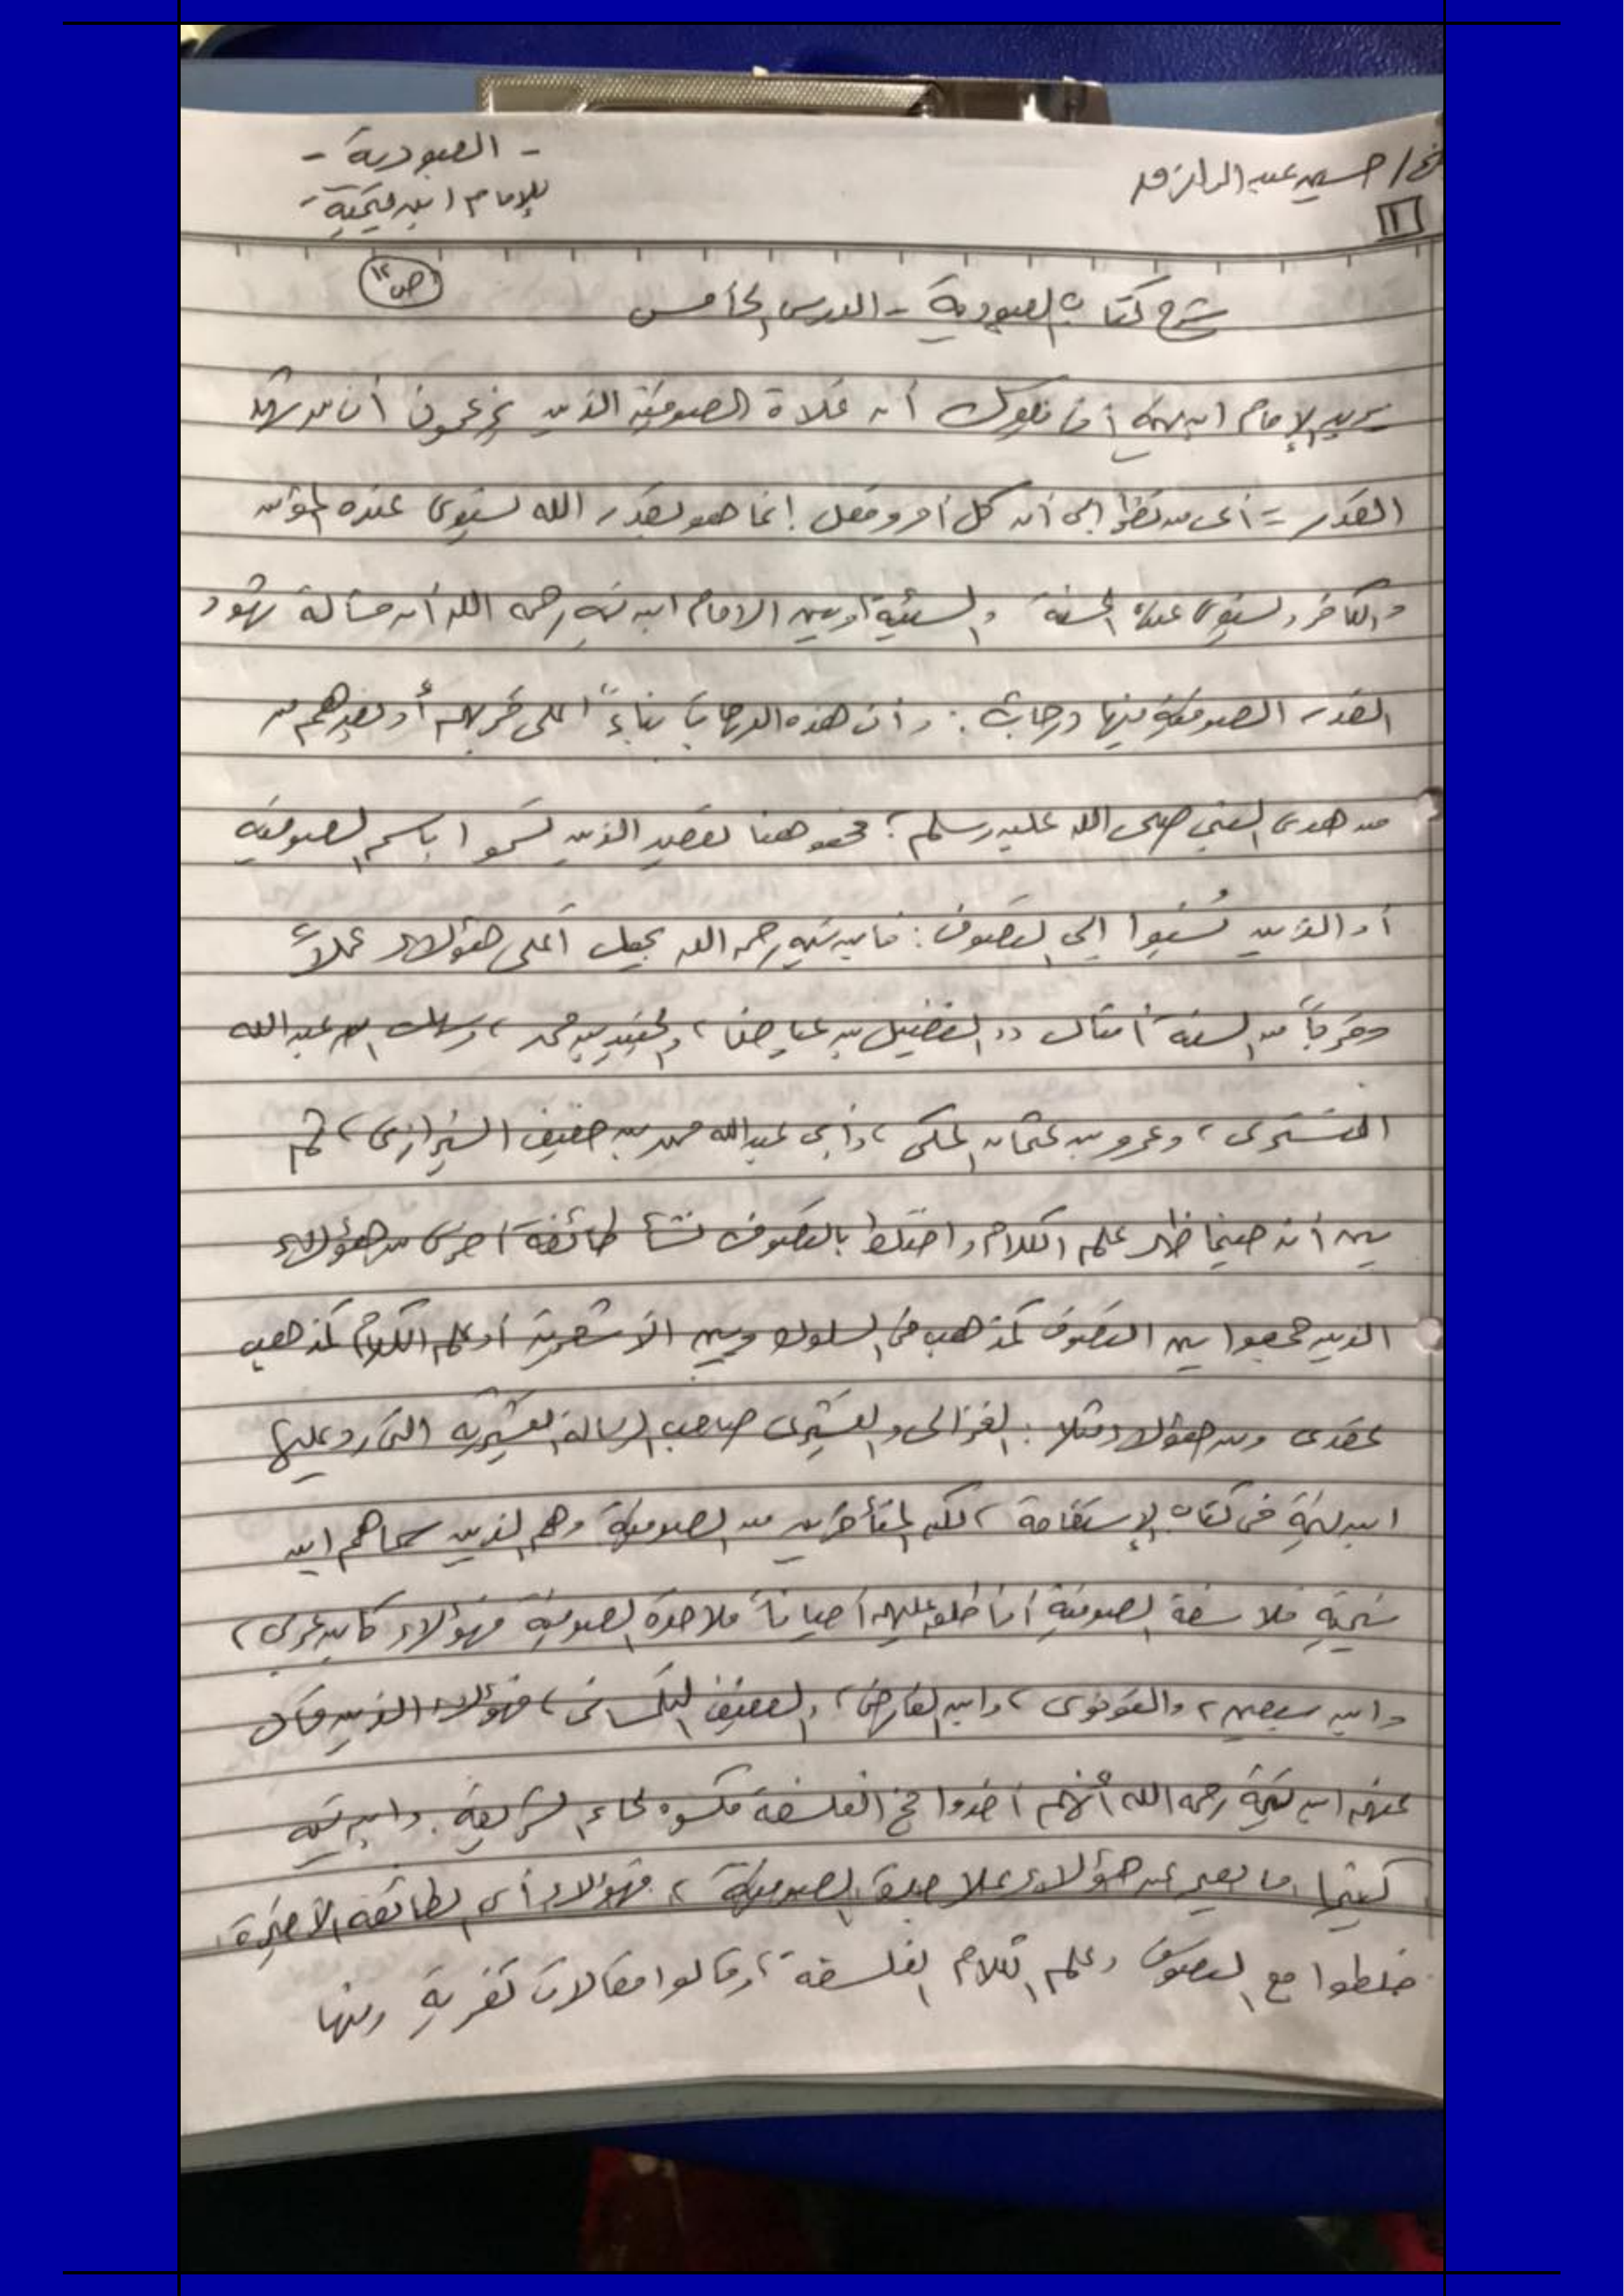 ش/ حسين عبد الرازق
- العبودية -
للإمام ابن تيمية -
١
ص١٢
شرح كتاب العبودية - الدرس الخامس
يريد الإمام ابن تيمية أن يقول أن غلاة الصوفية الذين يزعمون أن من شهد
القدر = أي من نظر إلى أن كل أمر وفعل إنما هو بقدر الله يستوي عنده المؤمن
والكافر ويستوي عنده الحسنة والسيئة وبين الامام ابن تيمية رحمه الله أن مسألة شهود
القدر الصوفية فيها درجات: وأن هذه الدرجات بناءً على قربهم أو بعدهم من
من هدى النبي صلى الله عليه وسلم؛ فنحن هنا نقصد الذين تسموا باسم الصوفية
أو الذين نُسبوا إلى التصوف: فابن تيمية رحمه الله يجعل أعلى هؤلاء عملاً
وقرباً من السنة أمثال الفضيل بن عياض، والجنيد بن محمد، وسهل بن عبدالله
التستري، وعمرو بن عثمان المكي، وأبي عبدالله محمد بن خفيف الشيرازي، ثم
بين أنه حينما ظهر علم الكلام واختلط بالتصوف نشأ طائفة أخرى من هؤلاء
الذين جمعوا بين التصوف كمذهب في السلوك وبين الأشعرية أو علم الكلام كمذهب
عقدي ومن هؤلاء مثلا: الغزالي والقشيري صاحب الرسالة القشيرية التي رد عليها
ابن تيمية في كتاب الإستقامة، لكن المتأخرين من الصوفية وهم الذين سماهم ابن
تيمية فلاسفة الصوفية أو أطلق عليهم أحياناً ملاحدة الصوفية فهؤلاء كابن عربي،
وابن سبعين، والقونوي، وابن الفارض، والعفيف التلمساني، فهؤلاء الذين قال
عنهم ابن تيمية رحمه الله أنهم أخذوا مخ الفلسفة فكسوه لحاء الشريعة. وابن تيمية
كثيرا ما يعبر عن هؤلاء بملاحدة الصوفية، فهؤلاء أي الطائفة الأخيرة
خلطوا مع التصوف وعلم الكلام الفلسفة، وقالوا مقالات كفرية ومنها